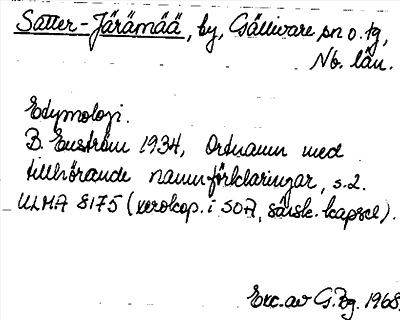 Satter-Järämää, by, Gällivare sn o. tg,
Nb. län.
Etymologi.
B. Enström 1934, Ortnamn med
tillhörande namnförklaringar, s. 2.
ULMA 8175 (xerokop. i SOA, särsk. kapsel).
Exc. av G. Bg. 1968.